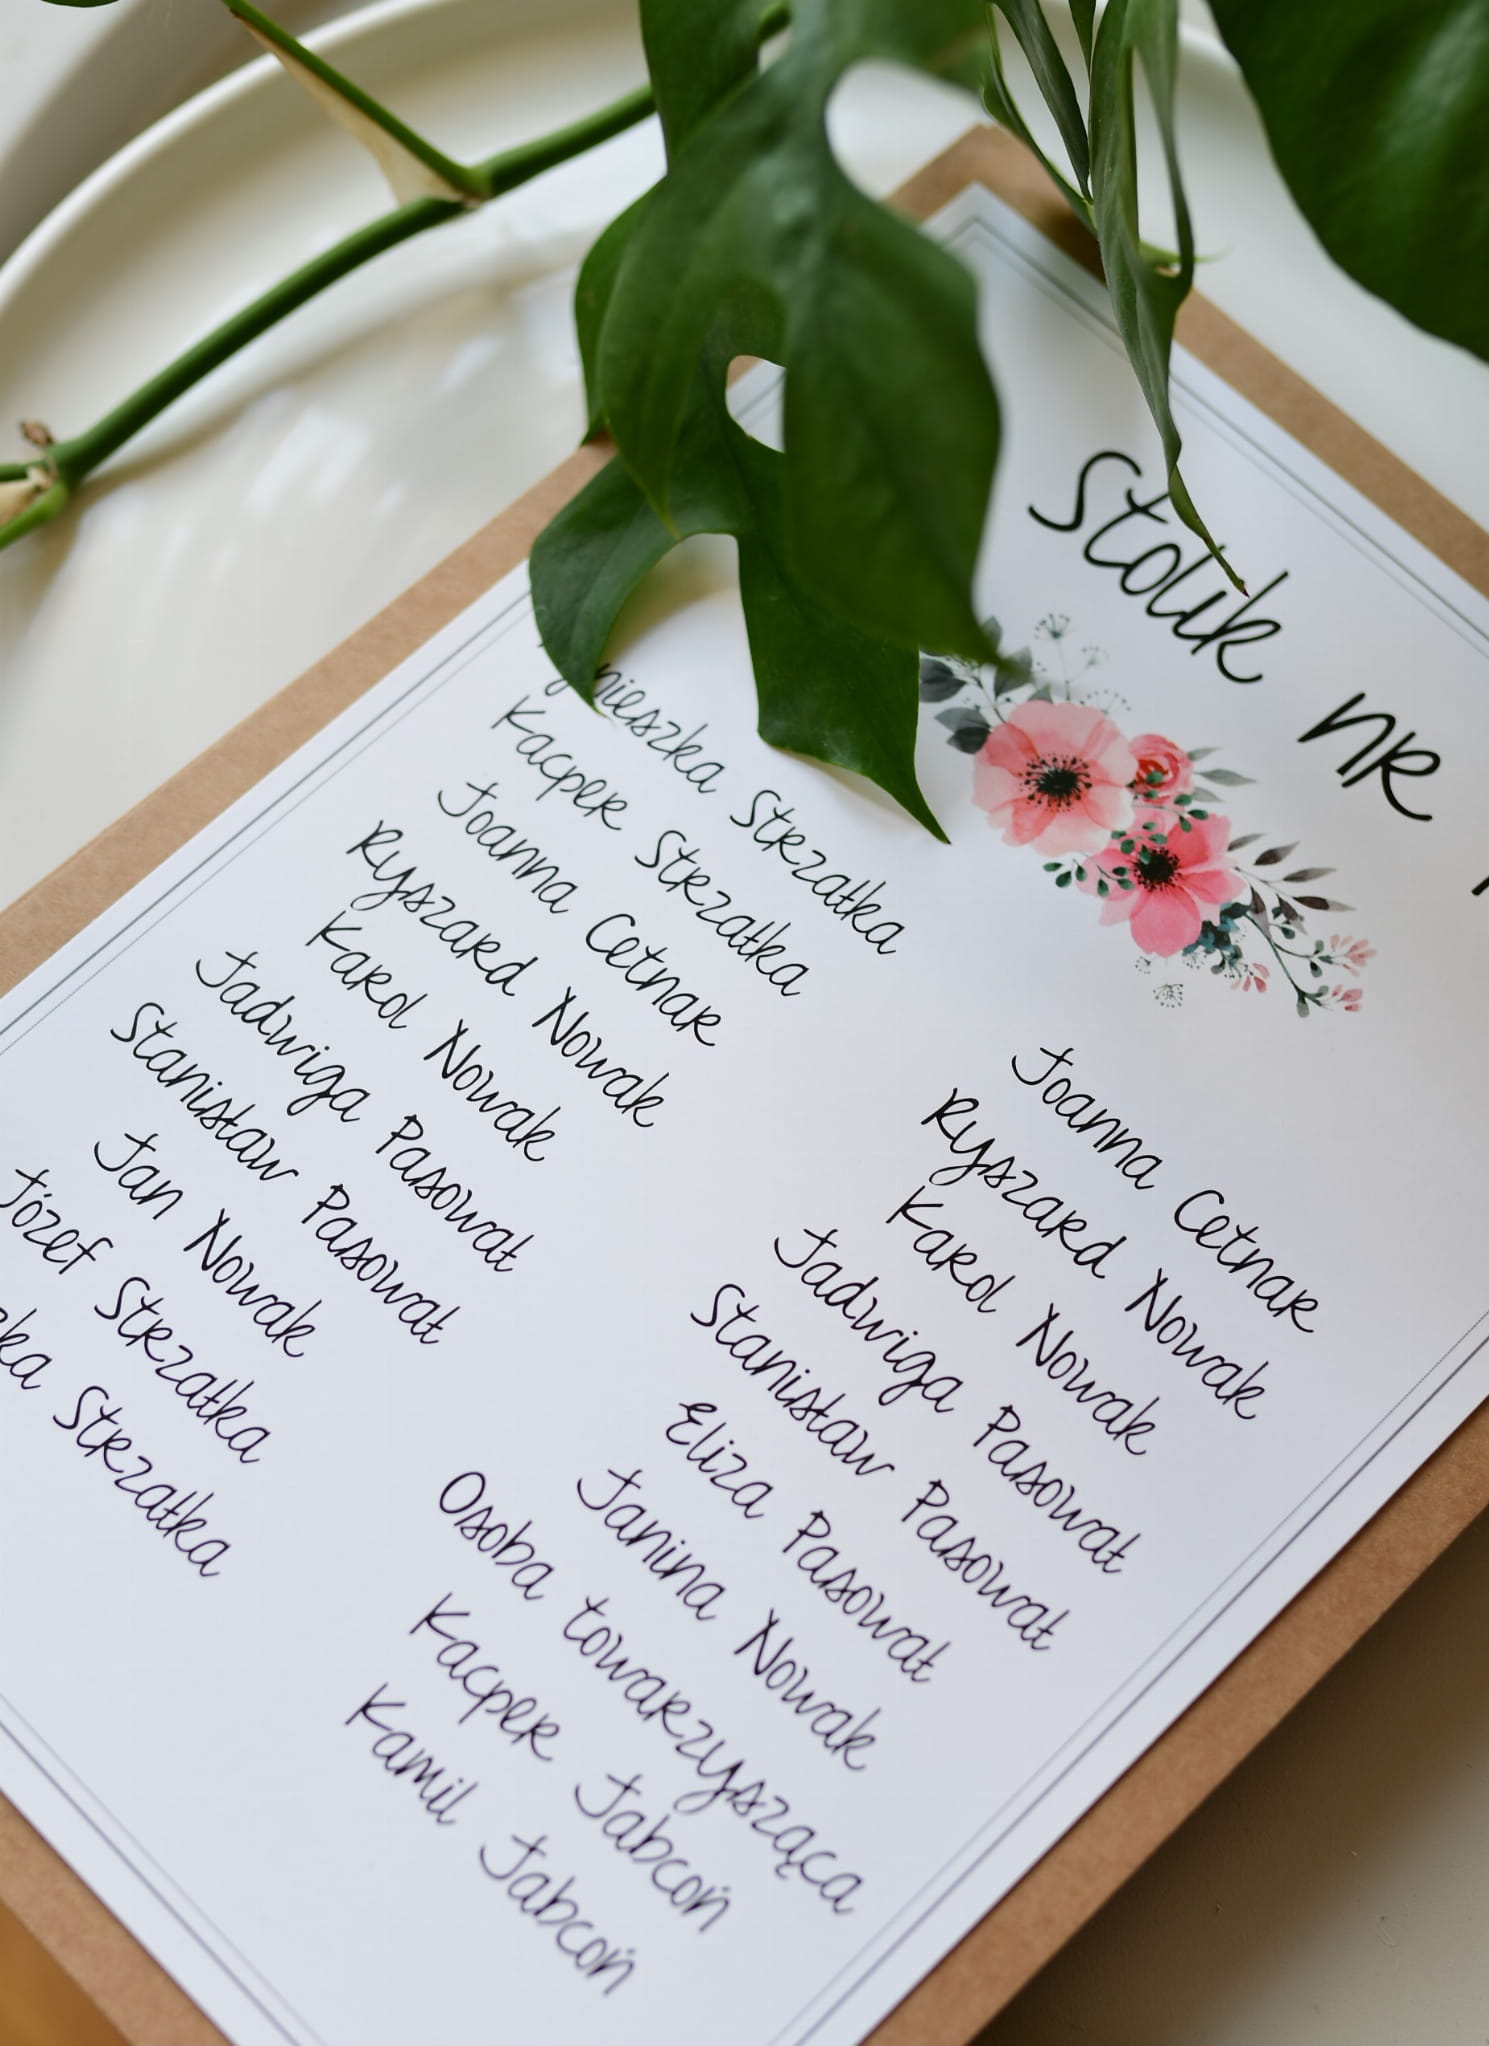 Stolik nr
Strzałka
Kacper Strzałka
Joanna Cetnar
Ryszard Nowak
Karol Nowak
Jadwiga Pasowat
Stanisław Pasowat
Jan Nowak
Józef Strzałka
Strzałka
Joanna Cetnar
Ryszard Nowak
Karol Nowak
Jadwiga Pasowat
Stanisław Pasowat
Eliza Pasowat
Janina Nowak
Osoba towarzysząca
Kacper Jabcoń
Kamil Jabcoń